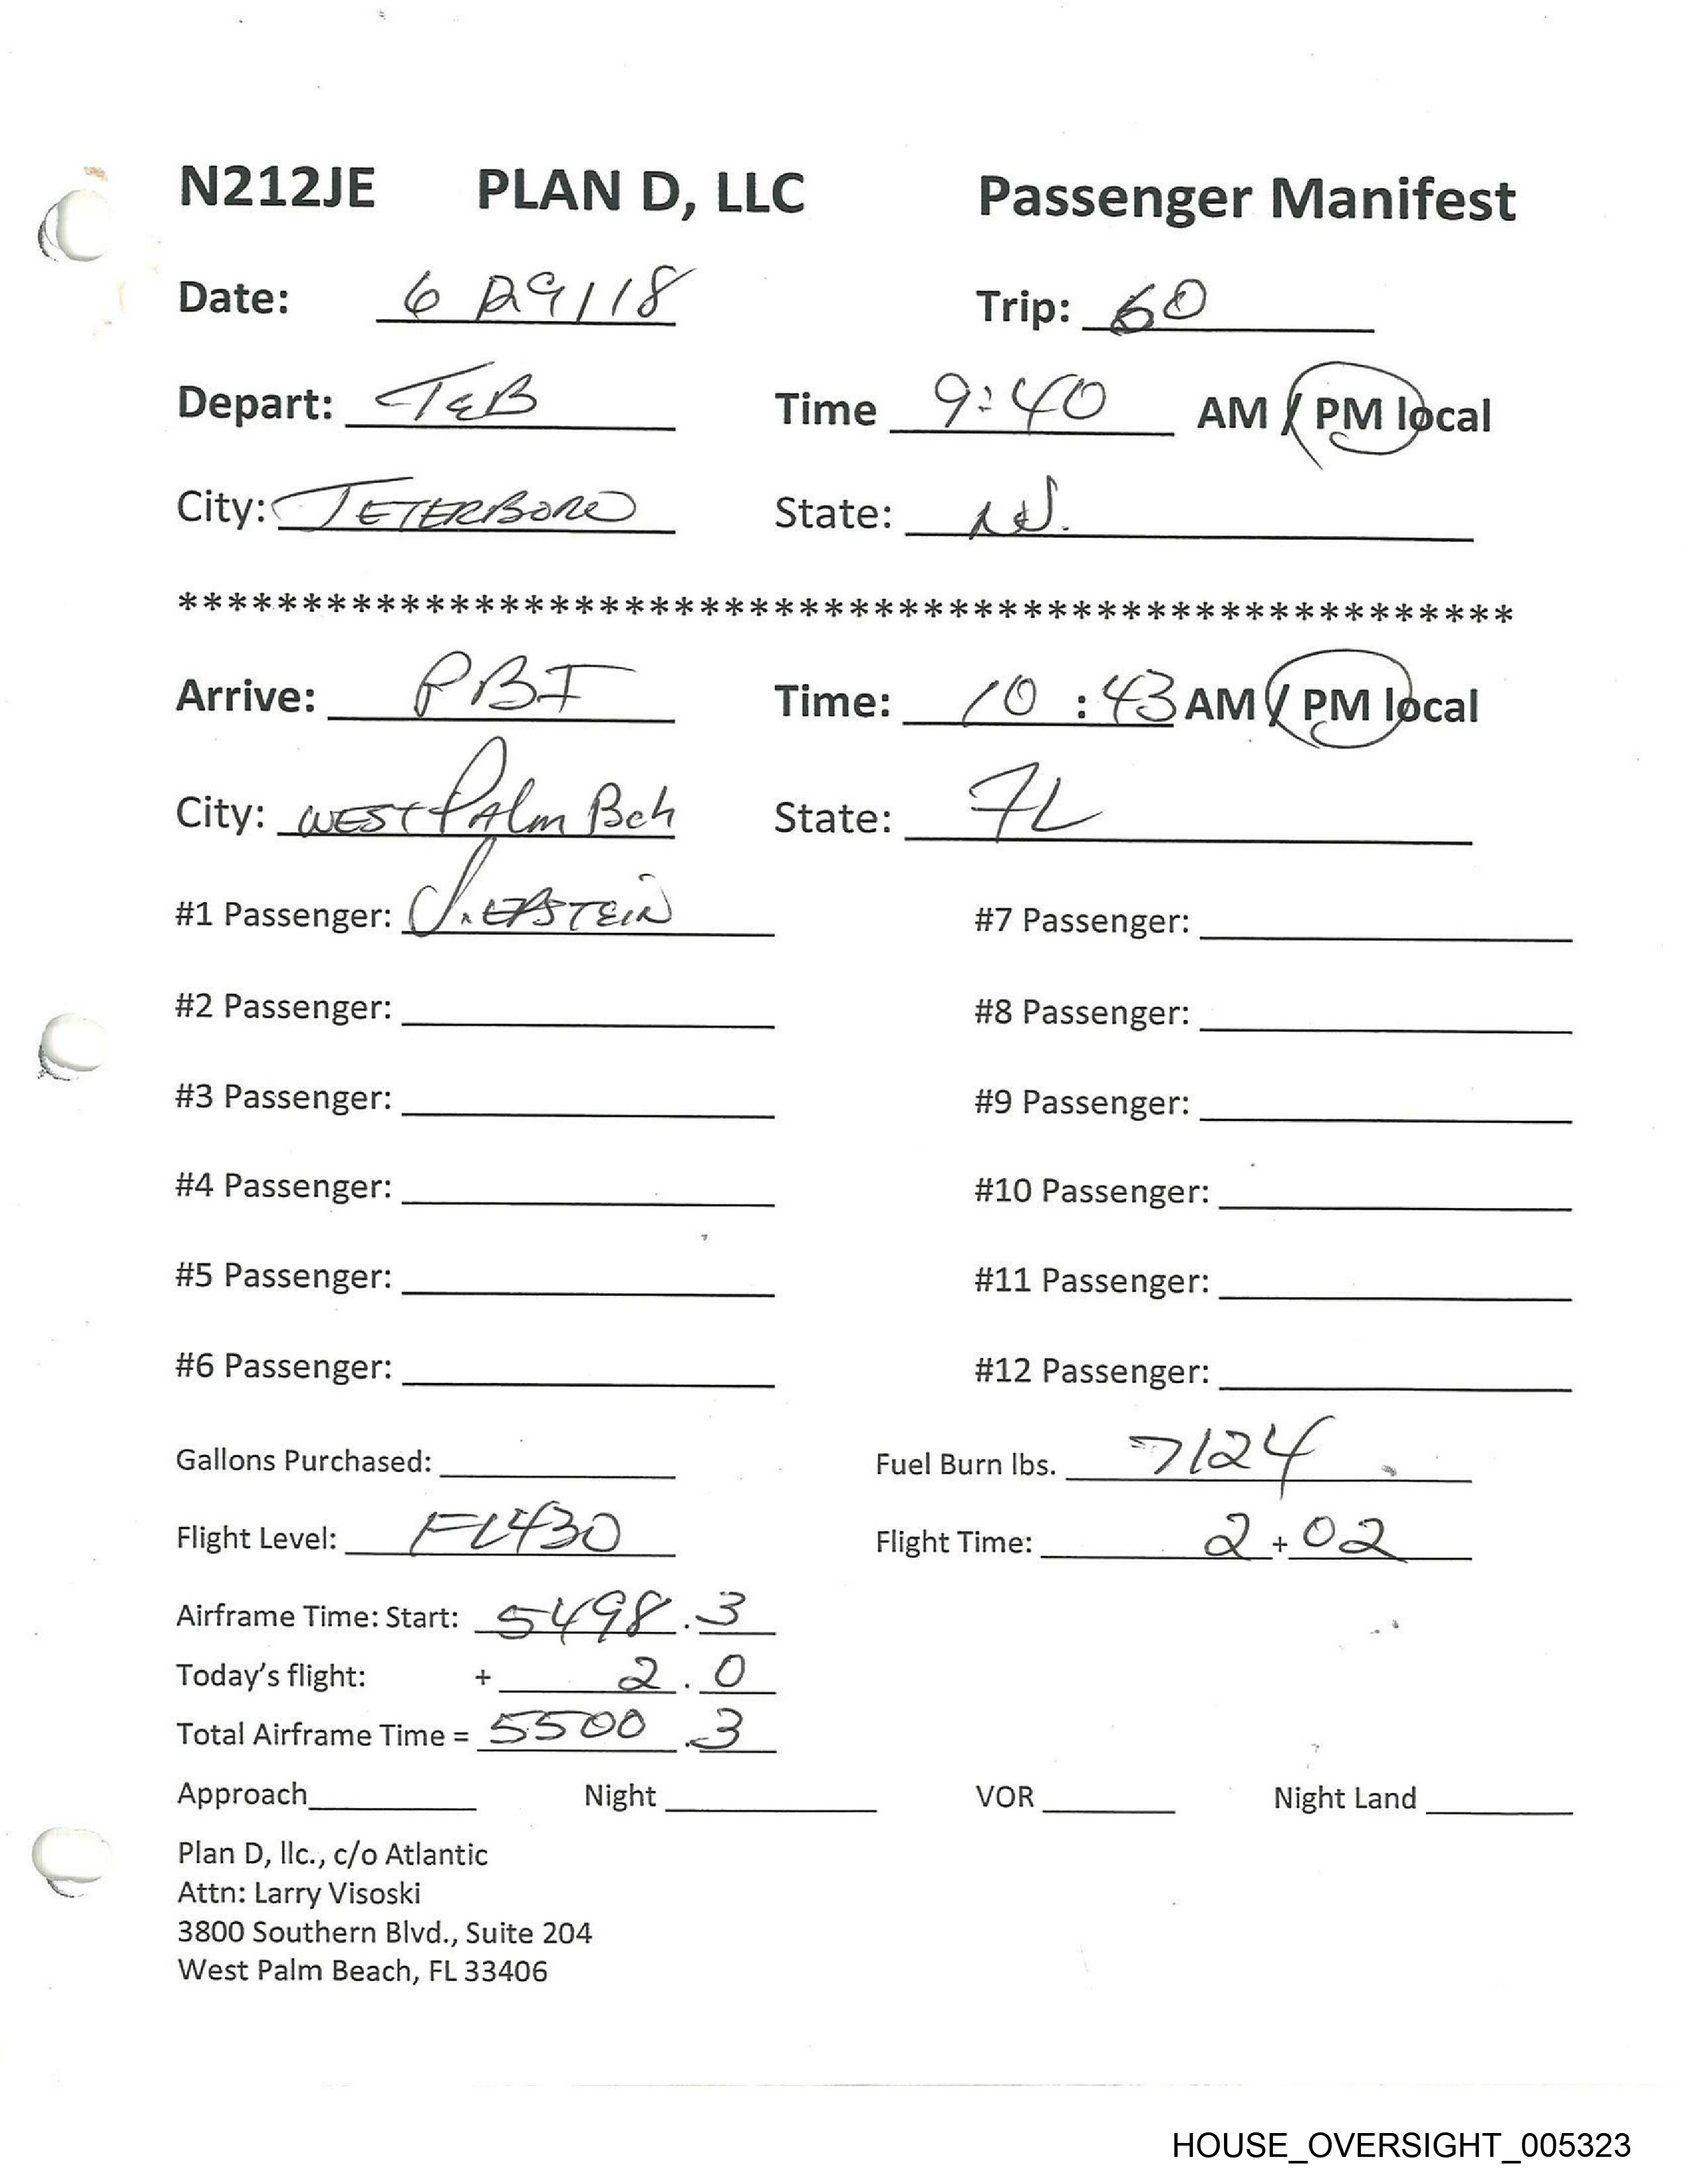 N212JE PLAN D, LLC Passenger Manifest
Date: 6/29/18 Trip: 60
Depart: TEB Time 9:40 AM / PM local
City: TETERBORO State: NJ.
******************************************************
Arrive: PBI Time: 10:43 AM / PM local
City: WEST PAlm Bch State: FL
#1 Passenger: J. EPSTEIN #7 Passenger:
#2 Passenger: #8 Passenger:
#3 Passenger: #9 Passenger:
#4 Passenger: #10 Passenger:
#5 Passenger: #11 Passenger:
#6 Passenger: #12 Passenger:
Gallons Purchased: Fuel Burn lbs. 7124
Flight Level: FL430 Flight Time: 2 + 02
Airframe Time: Start: 5498.3
Today's flight: + 2.0
Total Airframe Time = 5500.3
Approach Night VOR Night Land
Plan D, llc., c/o Atlantic
Attn: Larry Visoski
3800 Southern Blvd., Suite 204
West Palm Beach, FL 33406
HOUSE_OVERSIGHT_005323